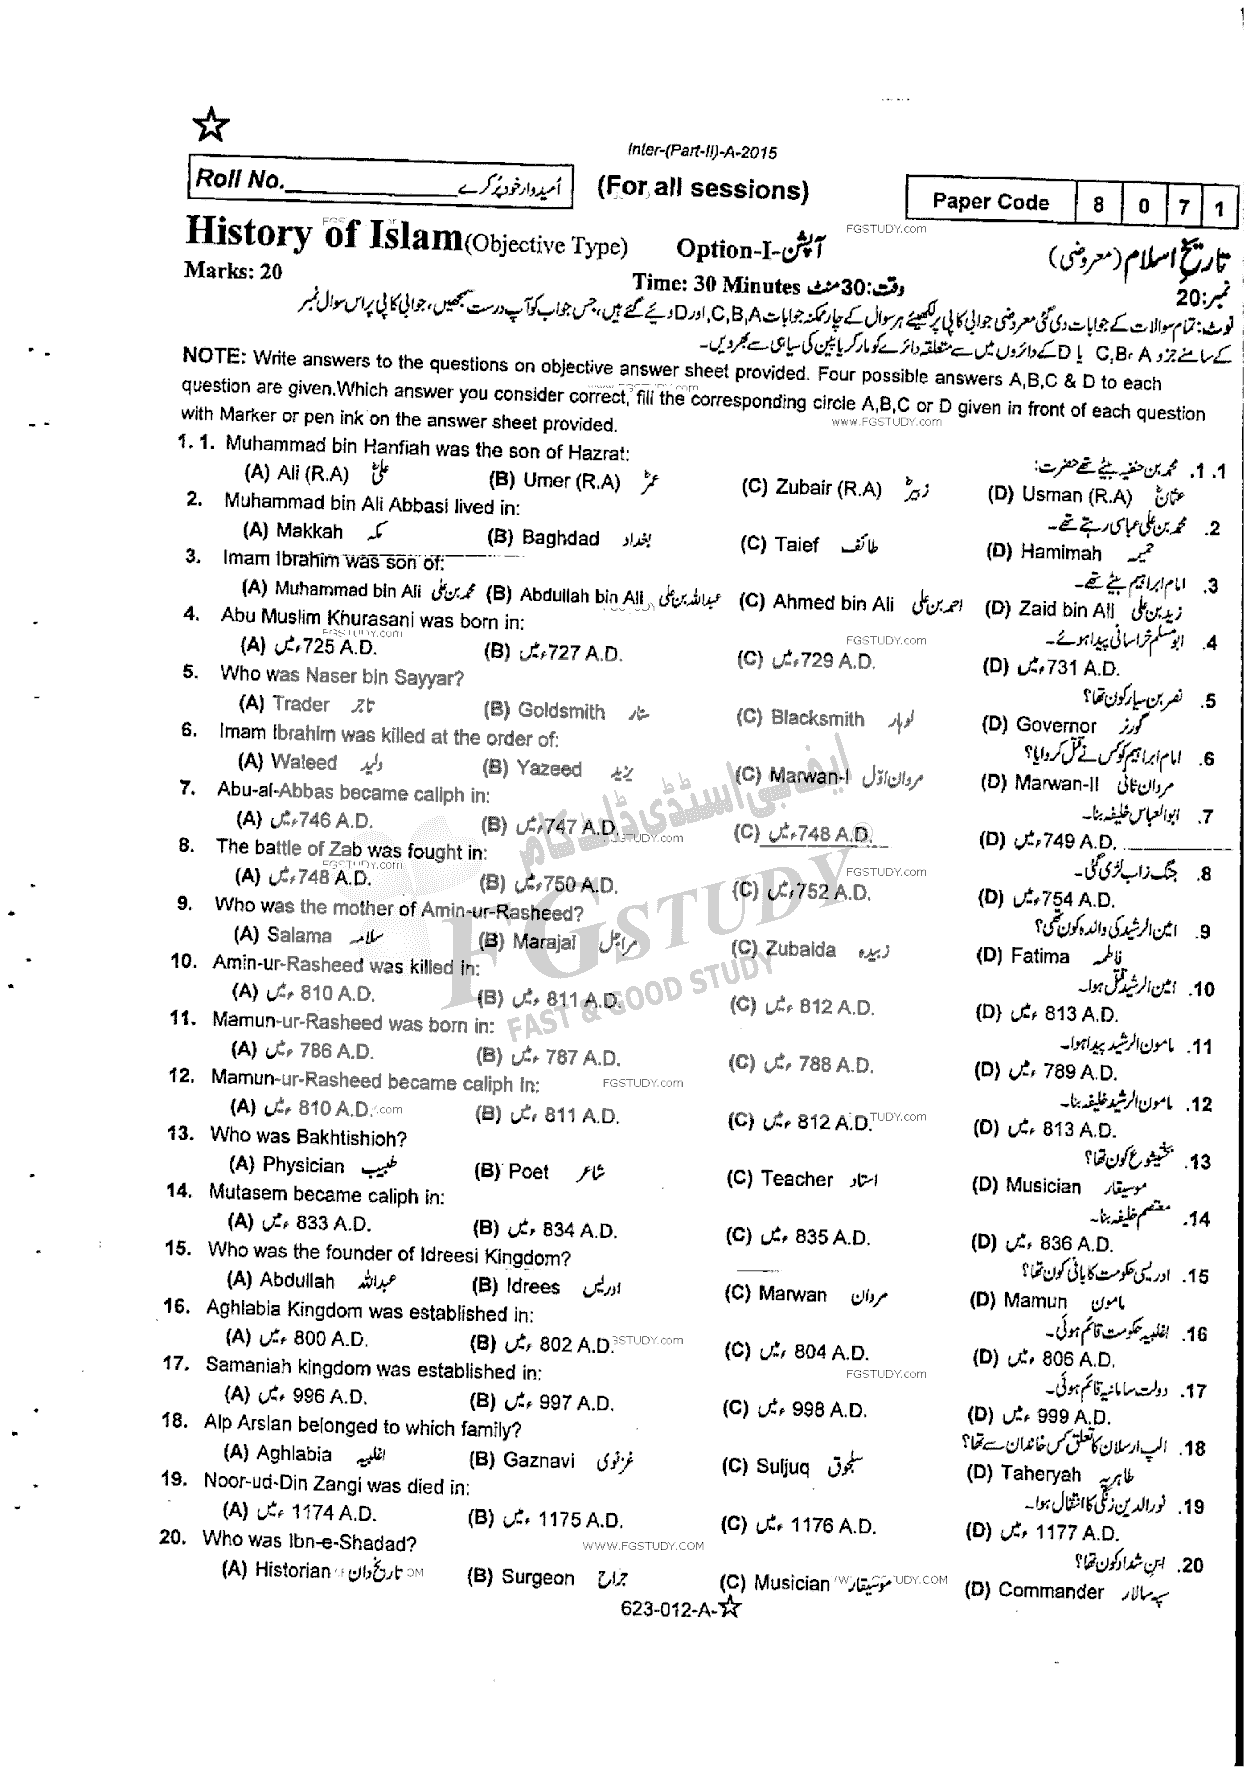 Inter-(Part-II)-A-2015
Roll No. اُمیدوار خود پُر کرے (For all sessions) Paper Code 8 0 7 1
FGSTUDY.com
History of Islam (Objective Type) Option-I-آپشن تاریخ اسلام (معروضی)
Marks: 20 Time: 30 Minutes وقت:30 منٹ نمبر:20
نوٹ: تمام سوالات کے جوابات دی گئی معروضی جوابی کاپی پر لکھیئے ہر سوال کے چار ممکنہ جوابات C,B,A, اور D دیئے گئے ہیں، جس جواب کو آپ درست سمجھیں، جوابی کاپی پر اس سوال نمبر
کے سامنے جزو C, B, A یا D کے دائروں میں سے متعلقہ دائرے کو مارکر یا پین کی سیاہی سے بھر دیں۔
NOTE: Write answers to the questions on objective answer sheet provided. Four possible answers A,B,C & D to each
question are given.Which answer you consider correct, fill the corresponding circle A,B,C or D given in front of each question
with Marker or pen ink on the answer sheet provided.
www.FGSTUDY.com
1. 1. Muhammad bin Hanfiah was the son of Hazrat: 1. 1. محمد بن حنفیہ بیٹے تھے حضرت:
(A) Ali (R.A) علیؓ (B) Umer (R.A) عمرؓ (C) Zubair (R.A) زبیرؓ (D) Usman (R.A) عثمانؓ
2. Muhammad bin Ali Abbasi lived in: 2. محمد بن علی عباسی رہتے تھے۔
(A) Makkah مکہ (B) Baghdad بغداد (C) Taief طائف (D) Hamimah
3. Imam Ibrahim was son of: 3. امام ابراہیم بیٹے تھے۔
(A) Muhammad bin Ali محمد بن علی (B) Abdullah bin Ali عبداللہ بن علی (C) Ahmed bin Ali احمد بن علی (D) Zaid bin Ali زید بن علی
4. Abu Muslim Khurasani was born in: 4. ابو مسلم خراسانی پیدا ہوئے۔
(A) 725ء میں A.D. (B) 727ء میں A.D. (C) 729ء میں A.D. (D) 731ء میں A.D.
5. Who was Naser bin Sayyar? 5. نصر بن سیار کون تھا؟
(A) Trader تاجر (B) Goldsmith سنار (C) Blacksmith لوہار (D) Governor گورنر
6. Imam Ibrahim was killed at the order of: 6. امام ابراہیم کو کس نے قتل کروایا؟
(A) Waleed ولید (B) Yazeed یزید (C) Marwan-I مروان اوّل (D) Marwan-II مروان ثانی
7. Abu-al-Abbas became caliph in: 7. ابوالعباس خلیفہ بنا۔
(A) 746ء میں A.D. (B) 747ء میں A.D. (C) 748ء میں A.D. (D) 749ء میں A.D.
8. The battle of Zab was fought in: 8. جنگ زاب لڑی گئی۔
(A) 748ء میں A.D. (B) 750ء میں A.D. (C) 752ء میں A.D. (D) 754ء میں A.D.
9. Who was the mother of Amin-ur-Rasheed? 9. امین الرشید کی والدہ کون تھی؟
(A) Salama سلامہ (B) Marajal مراجل (C) Zubaida زبیدہ (D) Fatima فاطمہ
10. Amin-ur-Rasheed was killed in: 10. امین الرشید قتل ہوا۔
(A) 810ء میں A.D. (B) 811ء میں A.D. (C) 812ء میں A.D. (D) 813ء میں A.D.
11. Mamun-ur-Rasheed was born in: 11. مامون الرشید پیدا ہوا۔
(A) 786ء میں A.D. (B) 787ء میں A.D. (C) 788ء میں A.D. (D) 789ء میں A.D.
12. Mamun-ur-Rasheed became caliph in: 12. مامون الرشید خلیفہ بنا۔
(A) 810ء میں A.D. (B) 811ء میں A.D. (C) 812ء میں A.D. (D) 813ء میں A.D.
13. Who was Bakhtishioh? 13. بختیشوع کون تھا؟
(A) Physician طبیب (B) Poet شاعر (C) Teacher استاد (D) Musician موسیقار
14. Mutasem became caliph in: 14. معتصم خلیفہ بنا۔
(A) 833ء میں A.D. (B) 834ء میں A.D. (C) 835ء میں A.D. (D) 836ء میں A.D.
15. Who was the founder of Idreesi Kingdom? 15. ادریسی حکومت کا بانی کون تھا؟
(A) Abdullah عبداللہ (B) Idrees ادریس (C) Marwan مروان (D) Mamun مامون
16. Aghlabia Kingdom was established in: 16. اغلبیہ حکومت قائم ہوئی۔
(A) 800ء میں A.D. (B) 802ء میں A.D. (C) 804ء میں A.D. (D) 806ء میں A.D.
17. Samaniah kingdom was established in: 17. دولت سامانیہ قائم ہوئی۔
(A) 996ء میں A.D. (B) 997ء میں A.D. (C) 998ء میں A.D. (D) 999ء میں A.D.
18. Alp Arslan belonged to which family? 18. الپ ارسلان کا تعلق کس خاندان سے تھا؟
(A) Aghlabia اغلبیہ (B) Gaznavi غزنوی (C) Suljuq سلجوق (D) Taheryah طاہریہ
19. Noor-ud-Din Zangi was died in: 19. نورالدین زنگی کا انتقال ہوا۔
(A) 1174ء میں A.D. (B) 1175ء میں A.D. (C) 1176ء میں A.D. (D) 1177ء میں A.D.
20. Who was Ibn-e-Shadad? 20. ابن شداد کون تھا؟
(A) Historian تاریخ دان (B) Surgeon جراح (C) Musician موسیقار (D) Commander سپہ سالار
WWW.FGSTUDY.COM
623-012-A-☆
ایف جی اسٹڈی ڈاٹ کام
FGSTUDY
FAST & GOOD STUDY